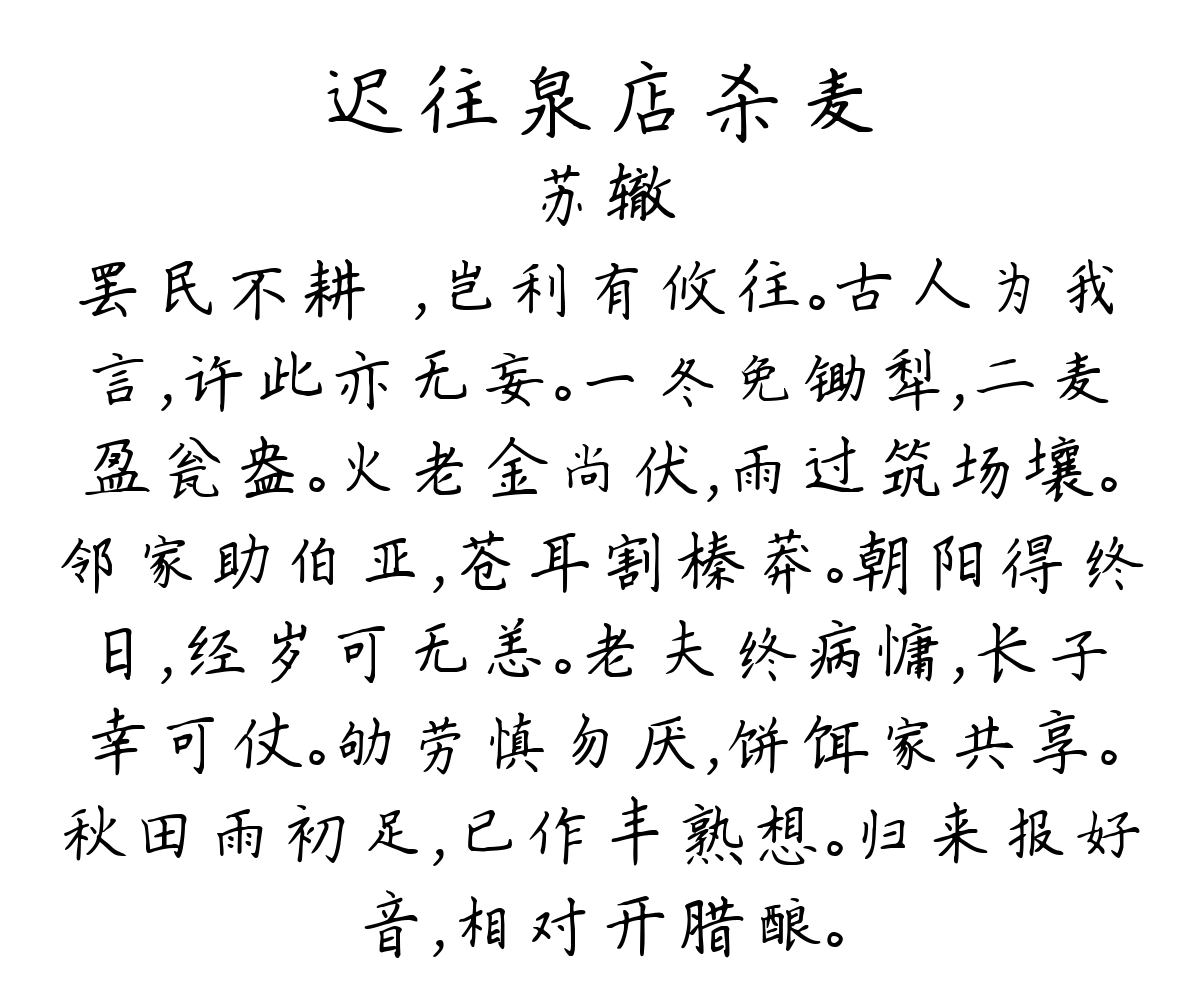 迟往泉店杀麦
苏辙
罢民不耕 ,岂利有攸往。古人为我
言,许此亦无妄。一冬免锄犁,二麦
盈瓮盎。火老金尚伏,雨过筑场壤。
邻家助伯亚,苍耳割榛莽。朝阳得终
日,经岁可无恙。老夫终病慵,长子
幸可仗。劬劳慎勿厌,饼饵家共享。
秋田雨初足,已作丰熟想。归来报好
音,相对开腊酿。